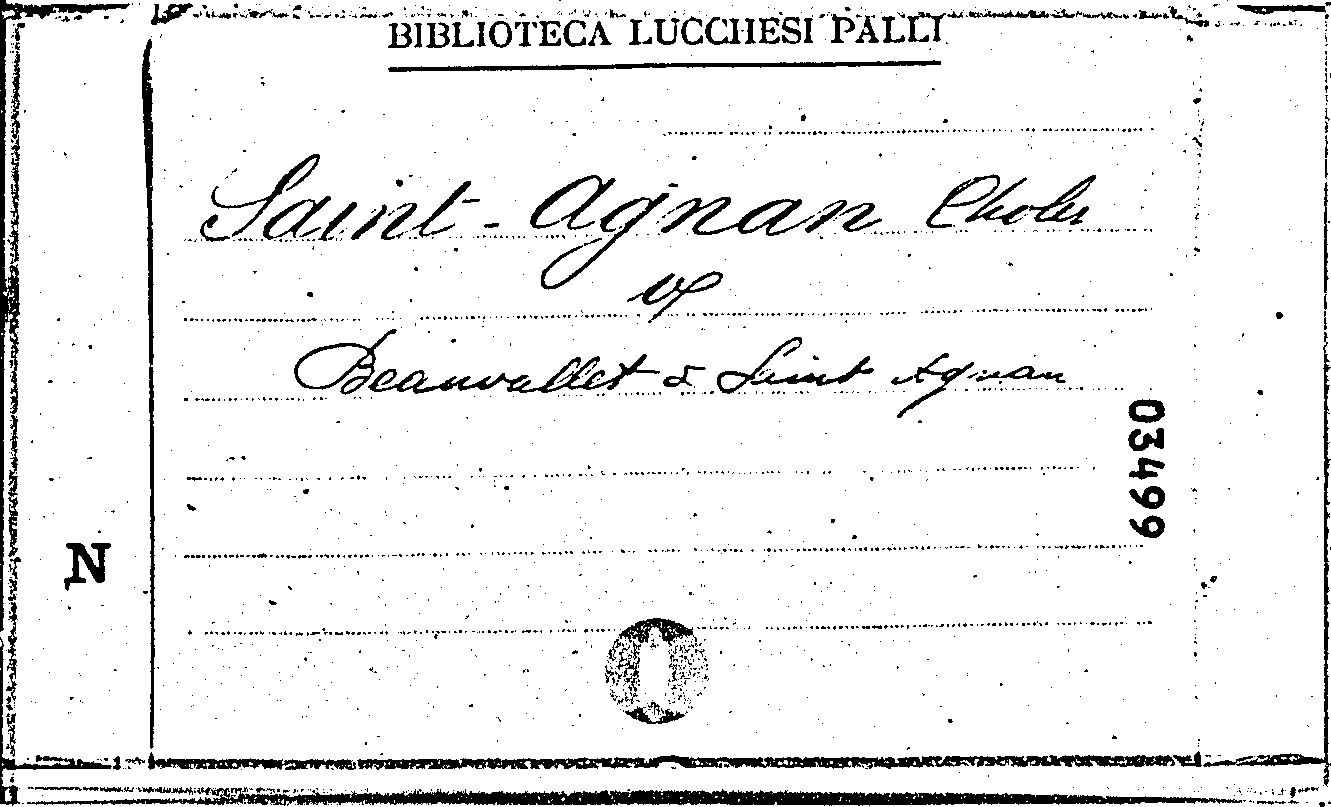 BIBLIOTECA LUCCHESI PALLI
Saint-Agnan Choler
Beauvallet & Saint Agnan
03499
N